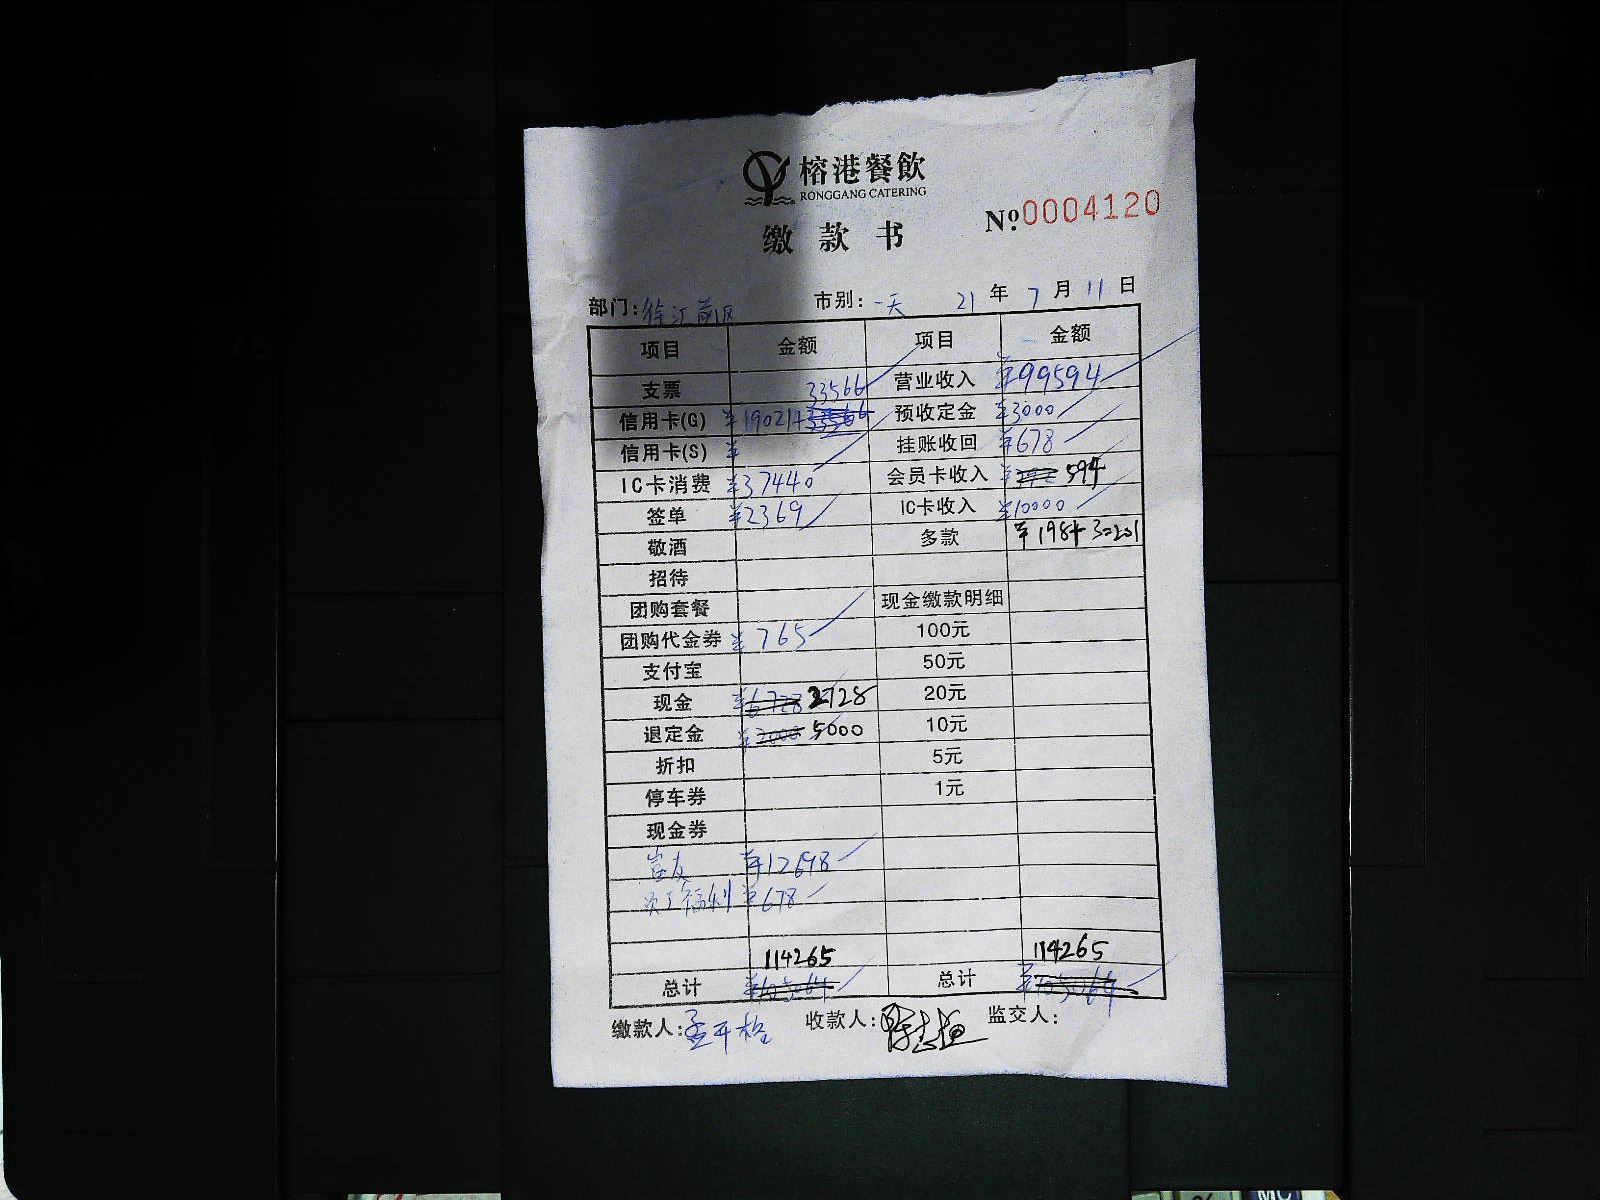 榕港餐飲
RONGGANG CATERING
№0004120
缴款书
部门: 市别: 一天 21年7月11日
项目 金额 项目 金额
支票 33566 营业收入 ¥99594
信用卡(G) ¥19021+ 预收定金 ¥3000
信用卡(S) ¥ 挂账收回 ¥678
IC卡消费 ¥37440 会员卡收入 ¥ 594
签单 ¥2369 IC卡收入 ¥10000
敬酒 多款 ¥198+30201
招待
团购套餐 现金缴款明细
团购代金券 ¥765 100元
支付宝 50元
现金 ¥6728 2728 20元
退定金 ¥2000 5000 10元
折扣 5元
停车券 1元
现金券
¥12698
员工福利 ¥678
114265 114265
总计 ¥105064 总计 ¥105064
缴款人: 收款人: 监交人: